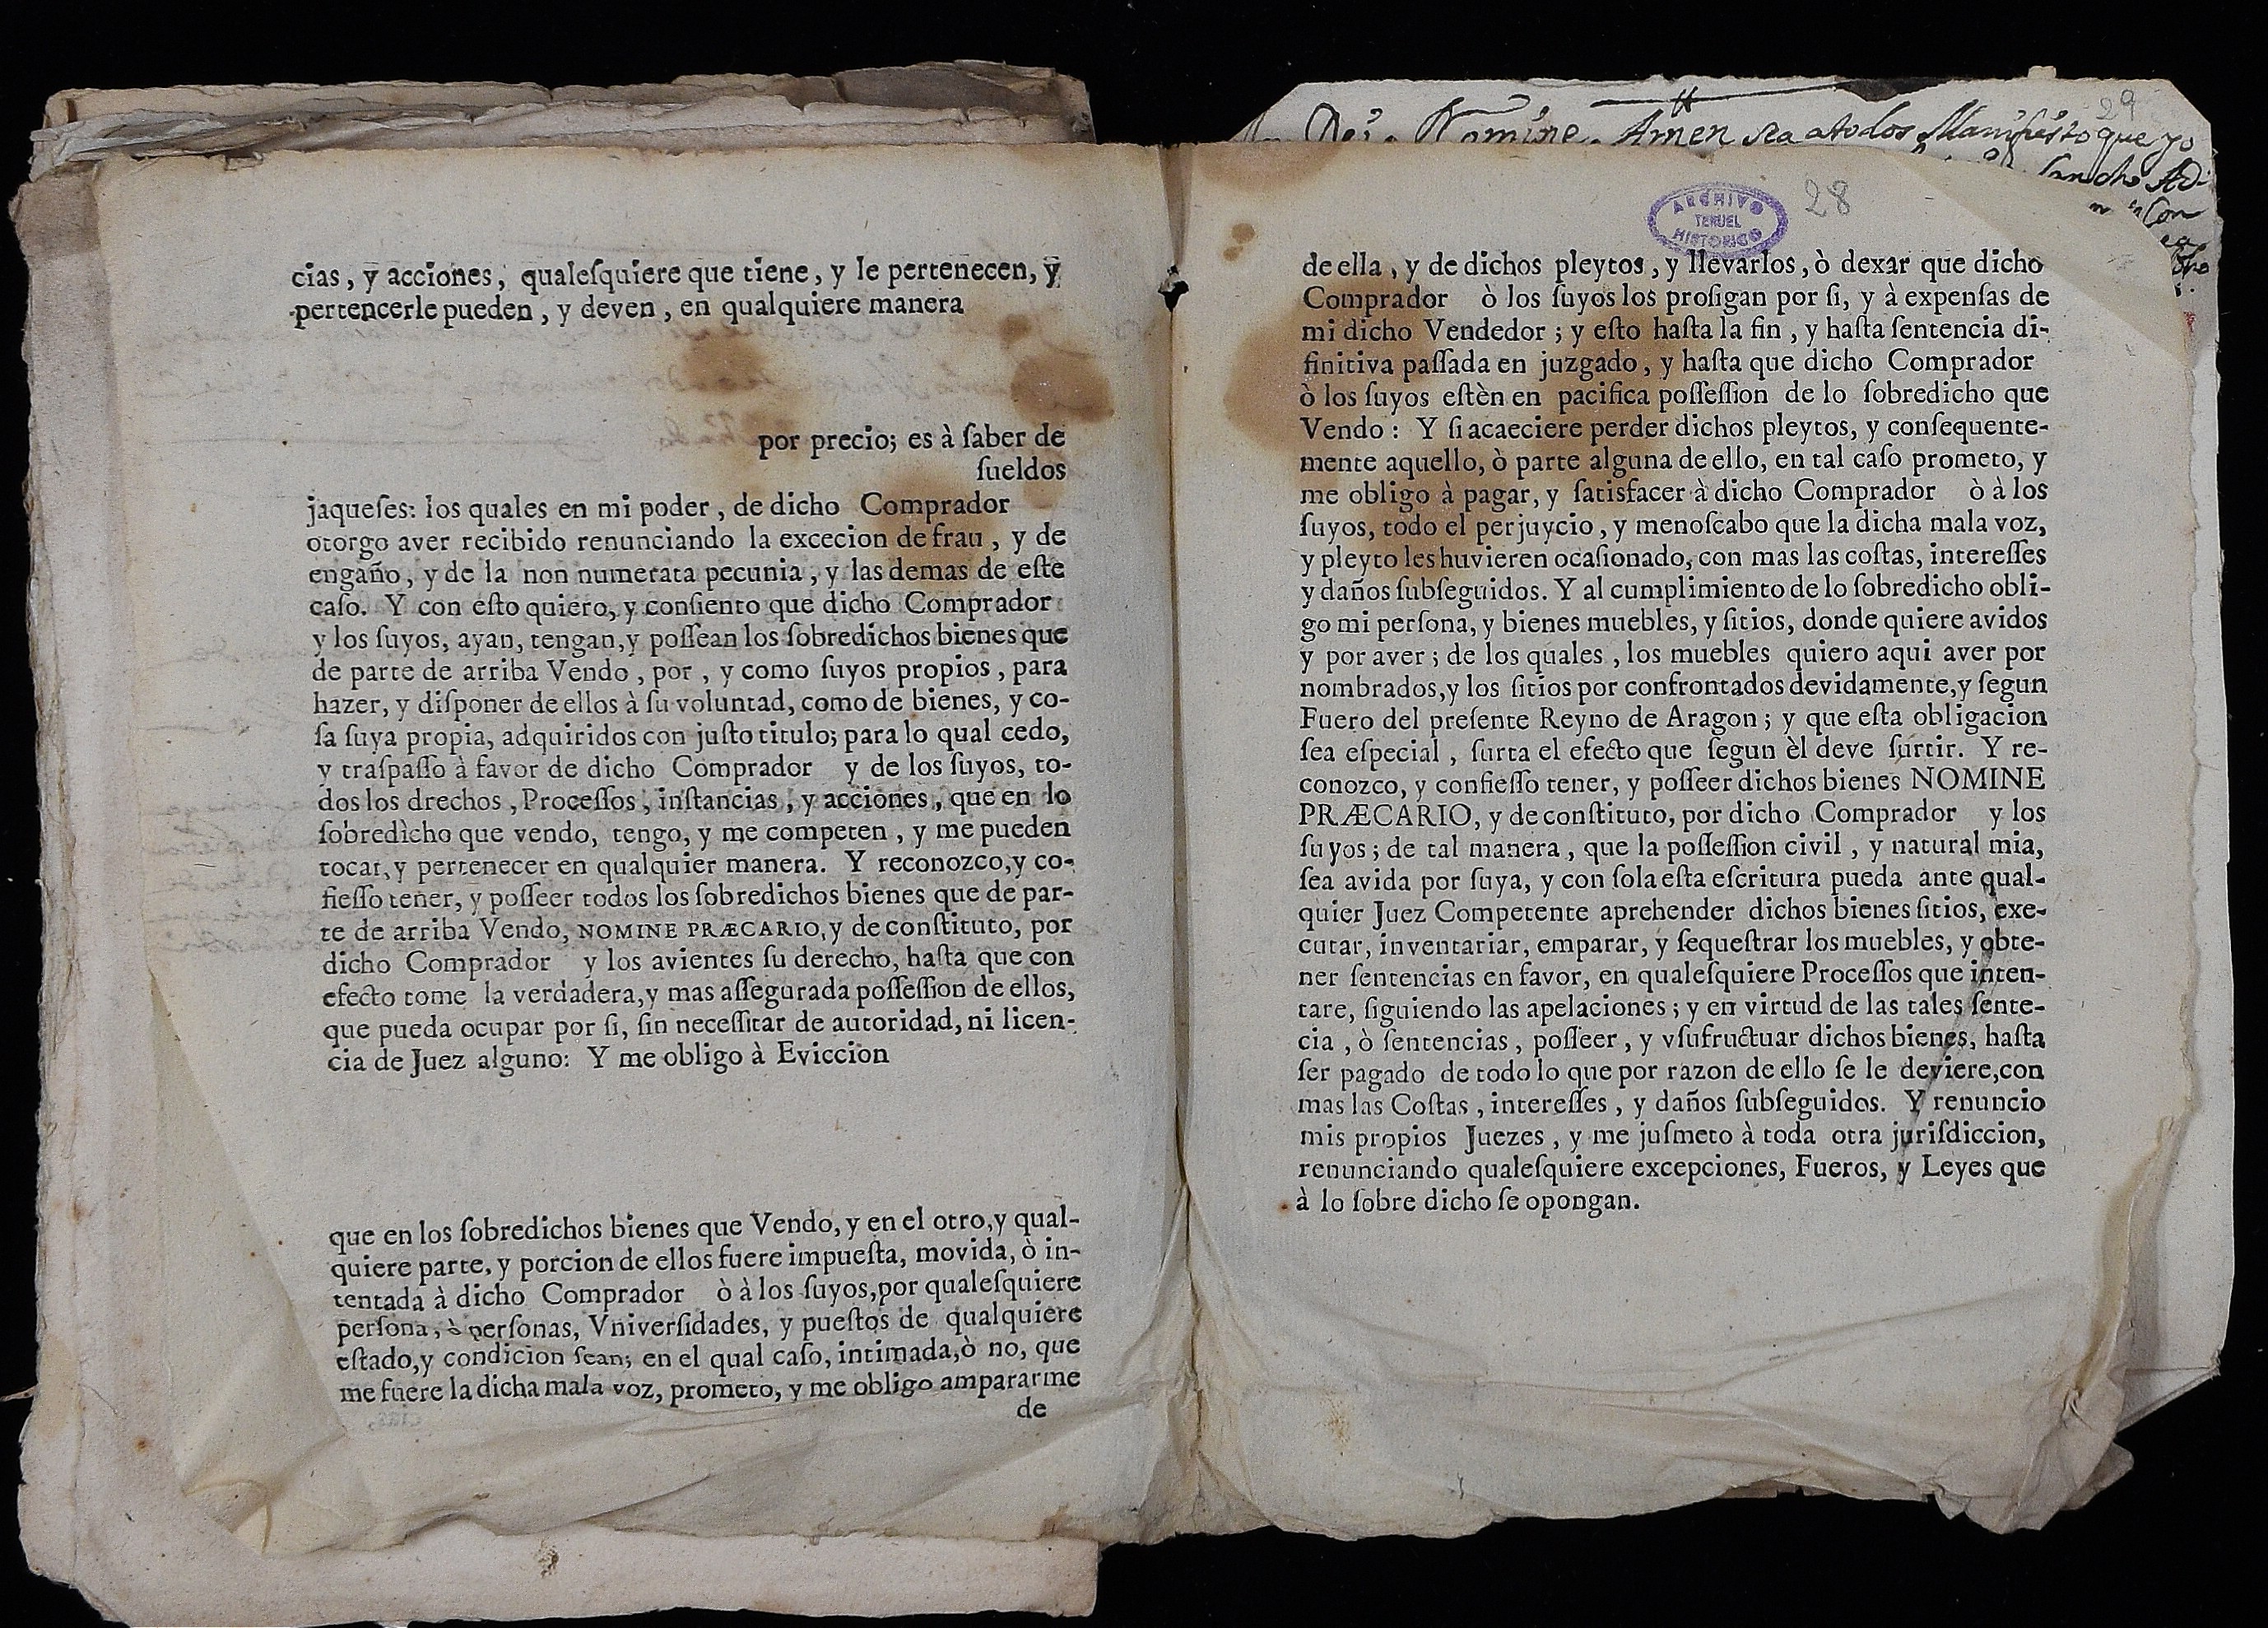 cias, y acciones, qualeſquiere que tiene, y le pertenecen, y
pertencerle pueden, y deven, en qualquiere manera
por precio; es à ſaber de
ſueldos
jaqueſes: los quales en mi poder, de dicho Comprador
otorgo aver recibido renunciando la excecion de frau, y de
engaño, y de la non numerata pecunia, y las demas de eſte
caſo. Y con eſto quiero, y conſiento que dicho Comprador
y los ſuyos, ayan, tengan, y poſſean los ſobredichos bienes que
de parte de arriba Vendo, por, y como ſuyos propios, para
hazer, y diſponer de ellos à ſu voluntad, como de bienes, y co-
ſa ſuya propia, adquiridos con juſto titulo; para lo qual cedo,
y traſpaſſo à favor de dicho Comprador y de los ſuyos, to-
dos los drechos, Proceſſos, inſtancias, y acciones, que en lo
ſobredicho que vendo, tengo, y me competen, y me pueden
tocar, y pertenecer en qualquier manera. Y reconozco, y co-
fieſſo tener, y poſſeer todos los ſobredichos bienes que de par-
te de arriba Vendo, NOMINE PRÆCARIO, y de conſtituto, por
dicho Comprador y los avientes ſu derecho, haſta que con
efecto tome la verdadera, y mas aſſegurada poſſeſſion de ellos,
que pueda ocupar por ſi, ſin neceſſitar de autoridad, ni licen-
cia de Juez alguno: Y me obligo à Eviccion
que en los ſobredichos bienes que Vendo, y en el otro, y qual-
quiere parte, y porcion de ellos fuere impueſta, movida, ò in-
tentada à dicho Comprador ò à los ſuyos, por qualeſquiere
perſona, ò perſonas, Vniverſidades, y pueſtos de qualquiere
eſtado, y condicion ſean; en el qual caſo, intimada, ò no, que
me fuere la dicha mala voz, prometo, y me obligo ampararme
de
29
Dei Nomine Amen sea atodos Manifiesto que yo
Sancho
Con
ARCHIVO
TERUEL
HISTORICO
28
de ella, y de dichos pleytos, y llevarlos, ò dexar que dicho
Comprador ò los ſuyos los proſigan por ſi, y à expenſas de
mi dicho Vendedor; y eſto haſta la fin, y haſta ſentencia di-
finitiva paſſada en juzgado, y haſta que dicho Comprador
ò los ſuyos eſtèn en pacifica poſſeſſion de lo ſobredicho que
Vendo: Y ſi acaeciere perder dichos pleytos, y conſequente-
mente aquello, ò parte alguna de ello, en tal caſo prometo, y
me obligo à pagar, y ſatisfacer à dicho Comprador ò à los
ſuyos, todo el perjuycio, y menoſcabo que la dicha mala voz,
y pleyto les huvieren ocaſionado, con mas las coſtas, intereſſes
y daños ſubſeguidos. Y al cumplimiento de lo ſobredicho obli-
go mi perſona, y bienes muebles, y ſitios, donde quiere avidos
y por aver; de los quales, los muebles quiero aqui aver por
nombrados, y los ſitios por confrontados devidamente, y ſegun
Fuero del preſente Reyno de Aragon; y que eſta obligacion
ſea eſpecial, ſurta el efecto que ſegun èl deve ſurtir. Y re-
conozco, y confieſſo tener, y poſſeer dichos bienes NOMINE
PRÆCARIO, y de conſtituto, por dicho Comprador y los
ſuyos; de tal manera, que la poſſeſſion civil, y natural mia,
ſea avida por ſuya, y con ſola eſta eſcritura pueda ante qual-
quier Juez Competente aprehender dichos bienes ſitios, exe-
cutar, inventariar, emparar, y ſequeſtrar los muebles, y obte-
ner ſentencias en favor, en qualeſquiere Proceſſos que inten-
tare, ſiguiendo las apelaciones; y en virtud de las tales ſente-
cia, ò ſentencias, poſſeer, y vſufructuar dichos bienes, haſta
ſer pagado de todo lo que por razon de ello ſe le deviere, con
mas las Coſtas, intereſſes, y daños ſubſeguidos. Y renuncio
mis propios Juezes, y me juſmeto à toda otra juriſdiccion,
renunciando qualeſquiere excepciones, Fueros, y Leyes que
à lo ſobre dicho ſe opongan.